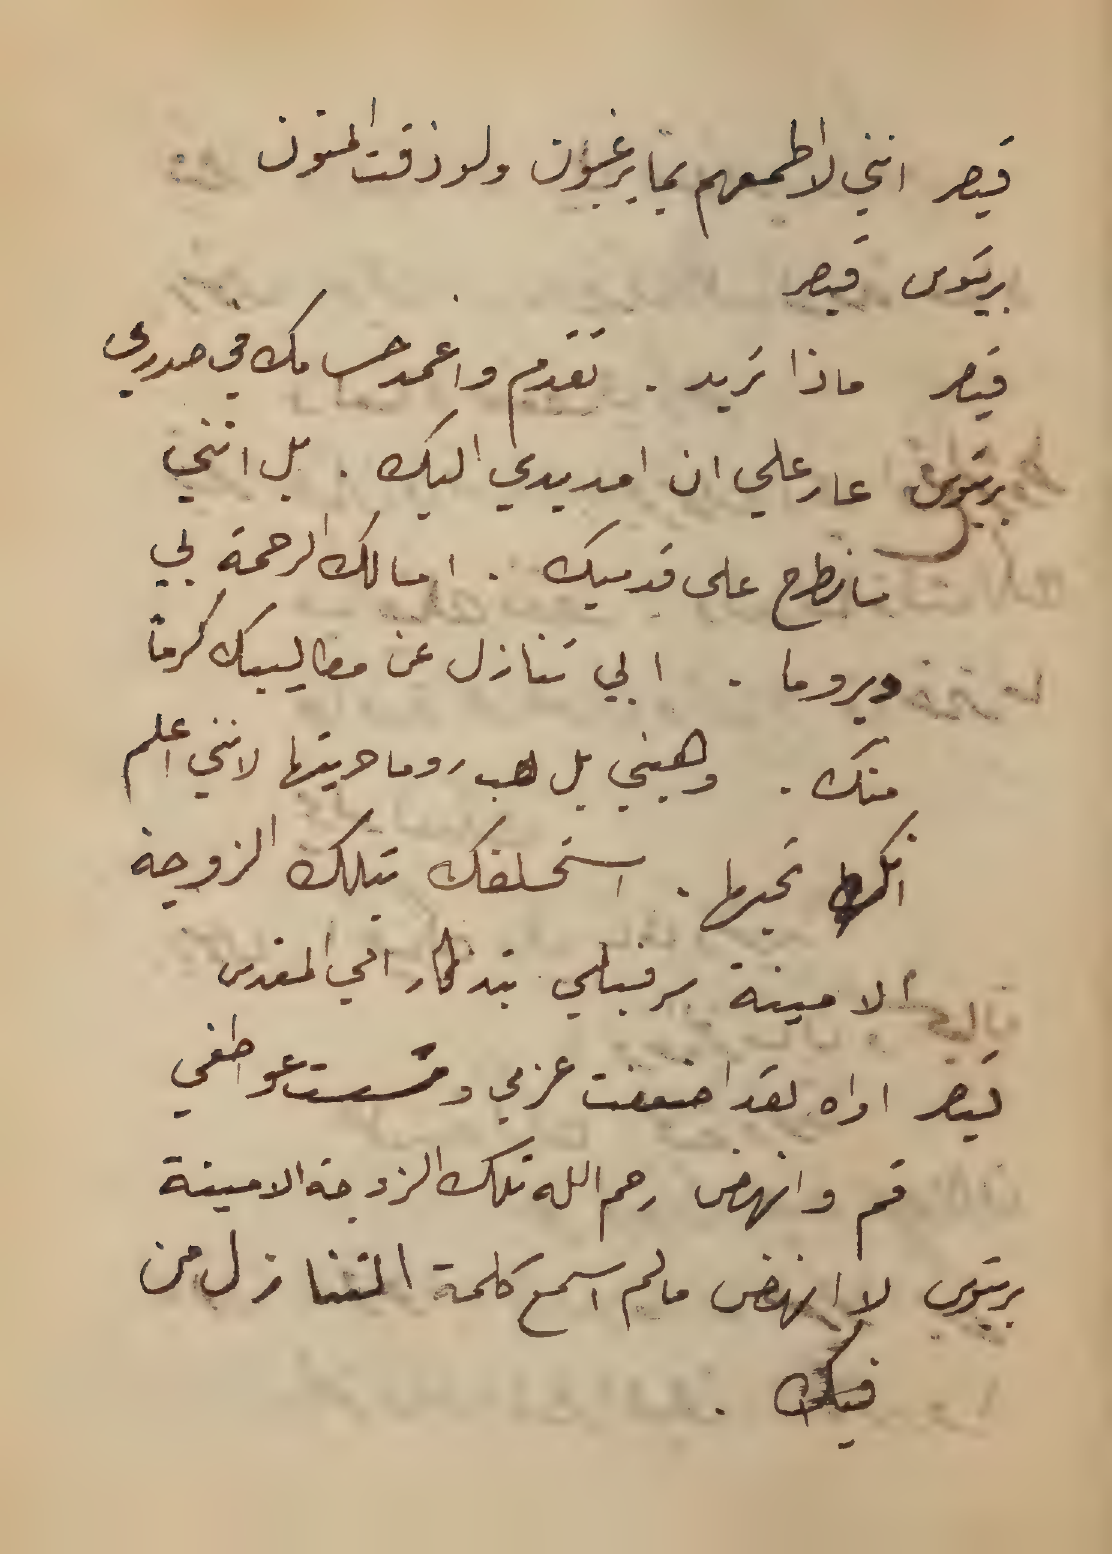 قيصر انني لاطمعهم بما يرغبون ولو ذقت المنون
بريتوس قيصر
قيصر ماذا تريد . تقدم واغمد حسامك في صدري
بريتوس عار علي ان امد يدي اليك . بل انني
سانطرح على قدميك . اسالك الرحمة لي
ولروما . ابي تنازل عن مطاليبك كرماً
منك . وهبني بل هب روما حريتها لانني اعلم
انك تحبها . استحلفك بتلك الزوجة
الامينة سرفيلي بتذكار امي المقدس
قيصر اواه لقد اضعفت عزمي و عواطفي
قم وانهض رحم الله تلك الزوجة الامينة
بريتوس لا انهض مالم اسمع كلمة التنازل من
فيك .